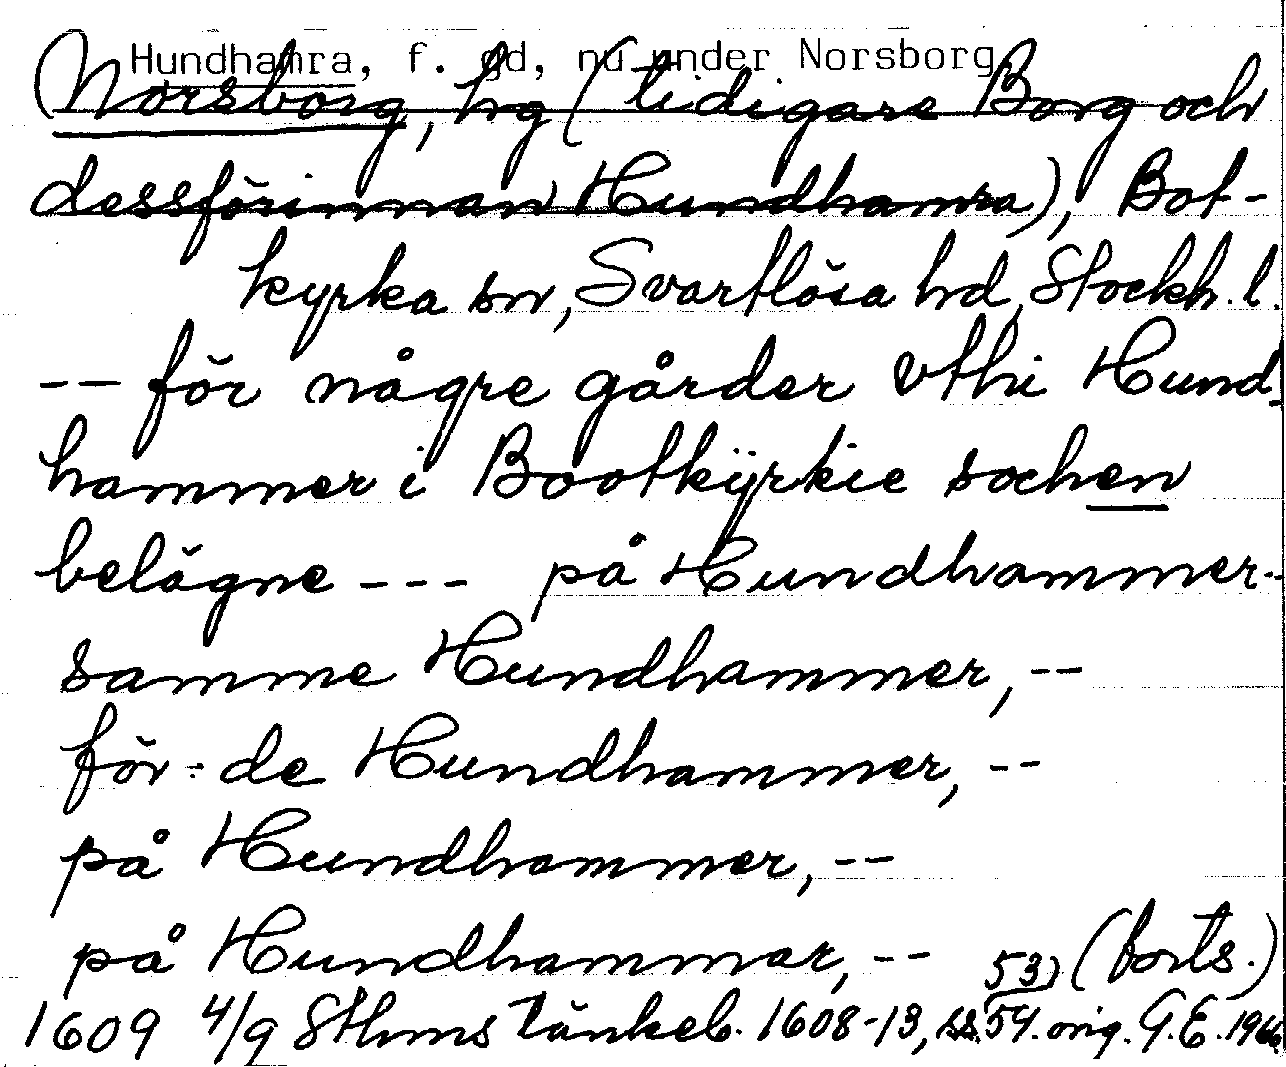 Hundhamra, f. gd, nu under Norsborg,
(Norsborg, hg (tidigare Borg och
dessförinnan Hundhamra), Bot-
kyrka sn, Svartlösa hd, Stockh. l.
-- för någre gårder vthi Hund-
hammer i Bootkÿrkie sochen
belägne --- på Hundhammer--
samme Hundhammer, --
för:de Hundhammer, --
på Hundhammer, --
på Hundhammar, -- 53) (forts.)
1609 4/9 Sthms Tänkeb. 1608-13, ss. 54. orig. G.E. 1966